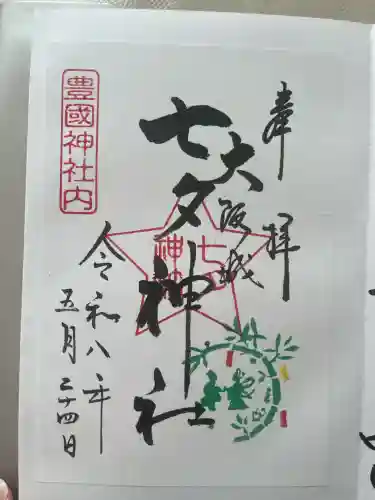 奉拝
大阪城
七夕神社
七夕
神社
令和八年
五月二十四日
豊國神社内